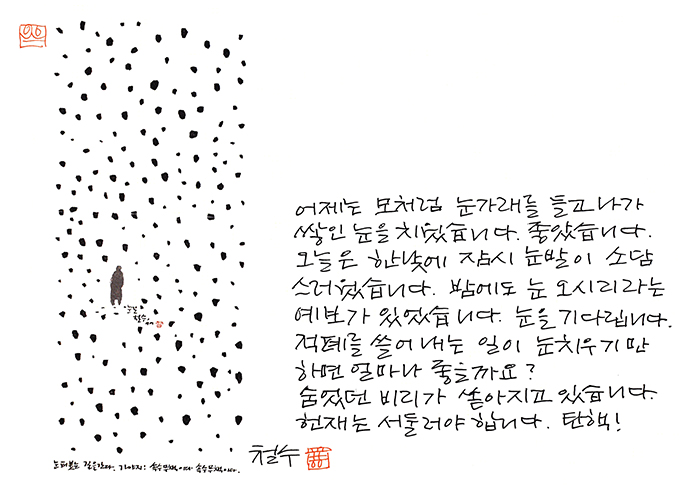 어제는 모처럼 눈가래를 들고 나가
쌓인 눈을 치웠습니다. 좋았습니다.
오늘은 한낮에 잠시 눈발이 소담
스러웠습니다. 밤에도 눈 오시리라는
예보가 있었습니다. 눈을 기다립니다.
적폐를 쓸어내는 일이 눈치우기만
하면 얼마나 좋을까요?
숨었던 비리가 쏟아지고 있습니다.
헌재는 서둘러야 합니다. 탄핵!
철수
눈 퍼붓는 길을 간다. 속수무책이다 속수무책이다.